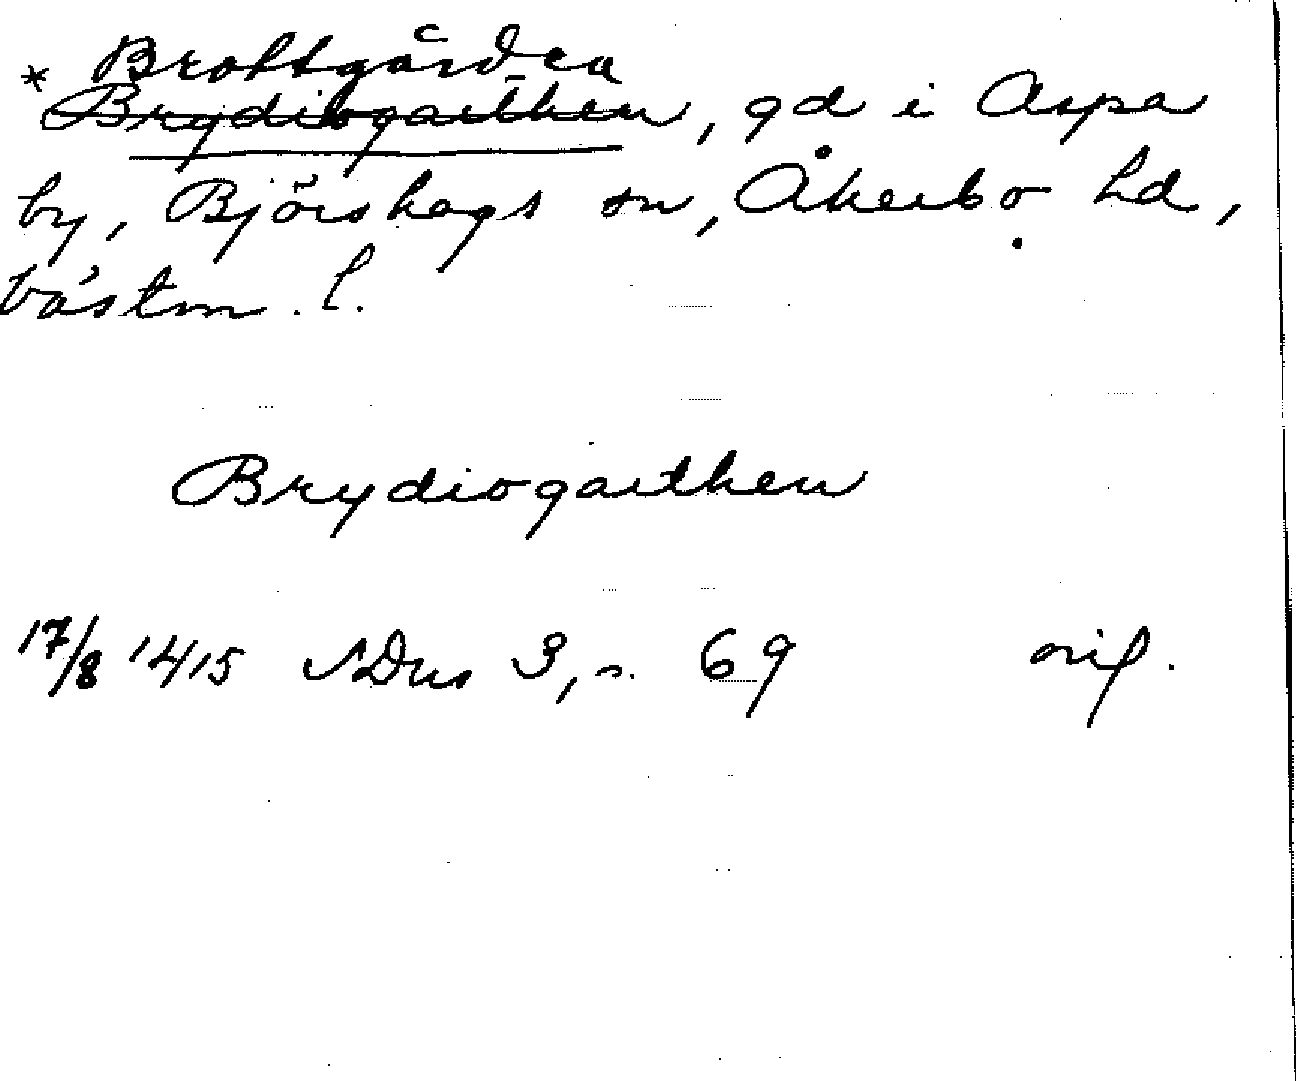 * Brottgården
Brydiogarthen, gd i Aspa
by, Björskogs sn, Åkerbo hd,
Västm. l.
Brydiogarthen
17/8 1415 SDns 3, s. 69 orig.